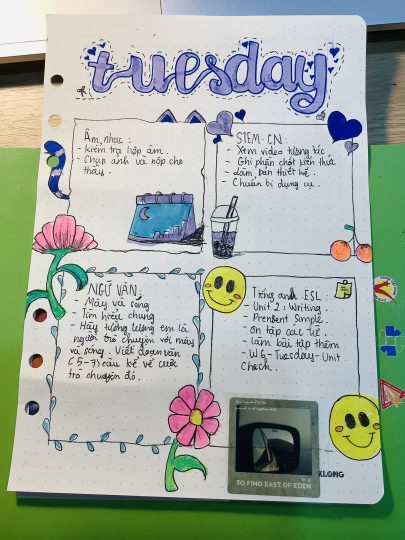 tuesday
Âm nhạc :
- Kiểm tra hợp âm.
- Chụp ảnh và nộp cho
thầy.
STEM-CN:
- Xem video tương tác
- Ghi phần chốt kiến thức
- Làm bản thiết kế.
- Chuẩn bị dụng cụ.
NGỮ VĂN:
- Mây và sóng
- Tìm hiểu chung
- Hãy tưởng tượng em là
người trò chuyện với mây
và sóng. Viết đoạn văn
(5-7) câu kể về cuộc
trò chuyện đó.
Tiếng anh ESL
- Unit 2: Writing.
- Present Simple.
- Ôn tập các từ.
- Làm bài tập thêm
- W6-Tuesday-Unit
Check.
KLONG
TO FIND EAST OF EDEN